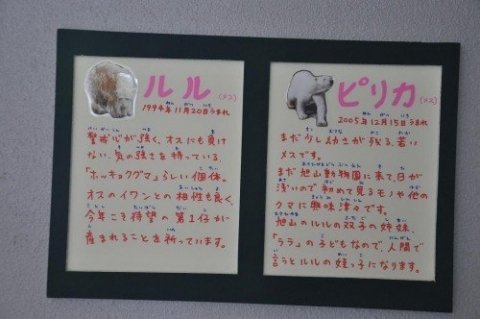 ルル(メス)
1994年11月20日うまれ
警戒心が強く、オスにも負け
ない、気の強さを持っている、
「ホッキョクグマ」らしい個体。
オスのイワンとの相性も良く、
今年こそ待望の第1仔が
産まれることを祈っています。
ピリカ(メス)
2005年12月15日うまれ
まだ少し幼さが残る、若い
メスです。
まだ旭山動物園に来て、日が
浅いので初めて見るモノや他の
クマに興味津々です。
旭山のルルの双子の姉妹、
「ララ」の子どもなので、人間で
言うとルルの姪っ子になります。